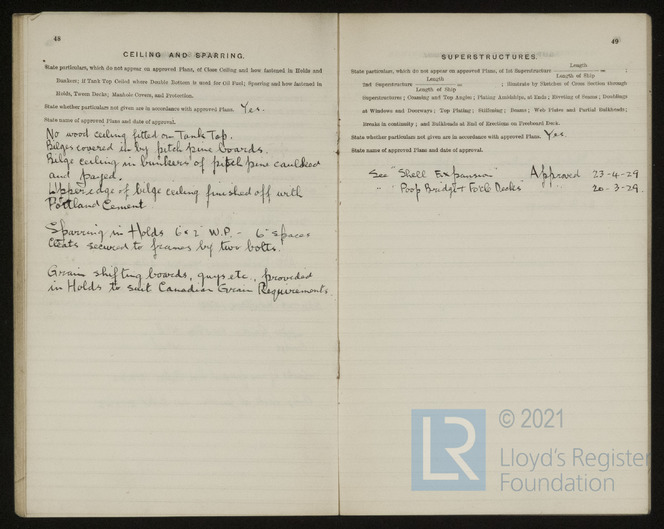 48
CEILING AND SPARRING.
State particulars, which do not appear on approved Plans, of Close Ceiling and how fastened in Holds and
Bunkers; if Tank Top Ceiled where Double Bottom is used for Oil Fuel; Sparring and how fastened in
Holds, Tween Decks; Manhole Covers, and Protection.
State whether particulars not given are in accordance with approved Plans. Yes.
State name of approved Plans and date of approval.
No wood ceiling fitted on Tank Top.
Bilges covered in by pitch pine boards.
Bilge ceiling in bunkers of pitch pine caulked
and payed.
Upper edge of bilge ceiling finished off with
Portland Cement
Sparring in Holds 6"x2" W.P. - 6" spaces
Cleats secured to frames by two bolts.
Grain shifting boards, guys etc., provided
in Holds to suit Canadian Grain Requirements.
49
SUPERSTRUCTURES.
State particulars, which do not appear on approved Plans, of 1st Superstructure Length / Length of Ship = ;
2nd Superstructure Length / Length of Ship = ; illustrate by Sketches of Cross Section through
Superstructures; Coaming and Top Angles; Plating Amidships, at Ends; Riveting of Seams; Doublings
at Windows and Doorways; Top Plating; Stiffening; Beams; Web Plates and Partial Bulkheads;
Breaks in continuity; and Bulkheads at End of Erections on Freeboard Deck.
State whether particulars not given are in accordance with approved Plans. Yes.
State name of approved Plans and date of approval.
See "Shell Expansion" Approved 23-4-29
" "Poop Bridge & Fo'cle Decks" " 20-3-29.
LR © 2021
Lloyd's Register
Foundation